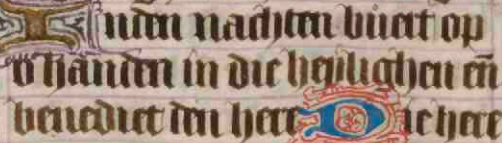 Inden nachten buert op
v handen in die heylighen en̄
benedict den here Die here